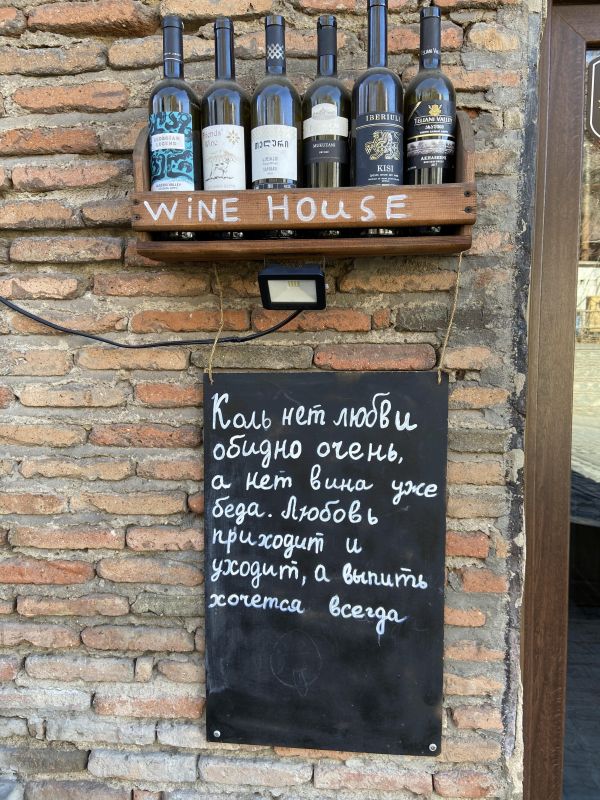 GEORGIAN
LEGEND
Wine
MUKUZANI
IBERIULI
KISI
TELIANI VALLEY
AKHASHENI
WINE HOUSE
Коль нет любви
обидно очень,
а нет вина уже
беда. Любовь
приходит и
уходит, а выпить
хочется всегда